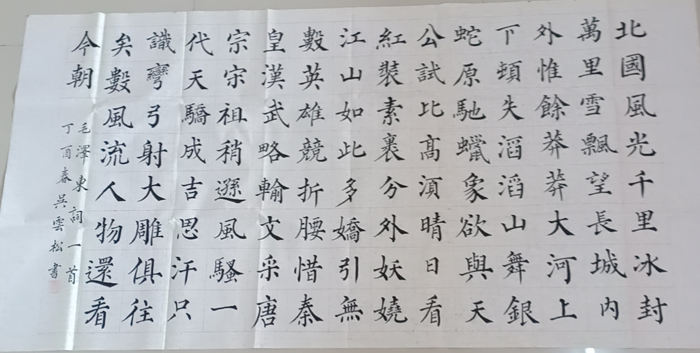 北國風光千里冰封
萬里雪飄望長城内
外惟餘莽莽大河上
下頓失滔滔山舞銀
蛇原馳蠟象欲與天
公試比高湏晴日看
紅裝素裹分外妖嬈
江山如此多嬌引無
數英雄競折腰惜秦
皇漢武略輸文采唐
宗宋祖稍遜風騷一
代天驕成吉思汗只
識彎弓射大雕俱往
矣數風流人物還看
今朝
毛澤東詞一首
丁酉春吳雲松書